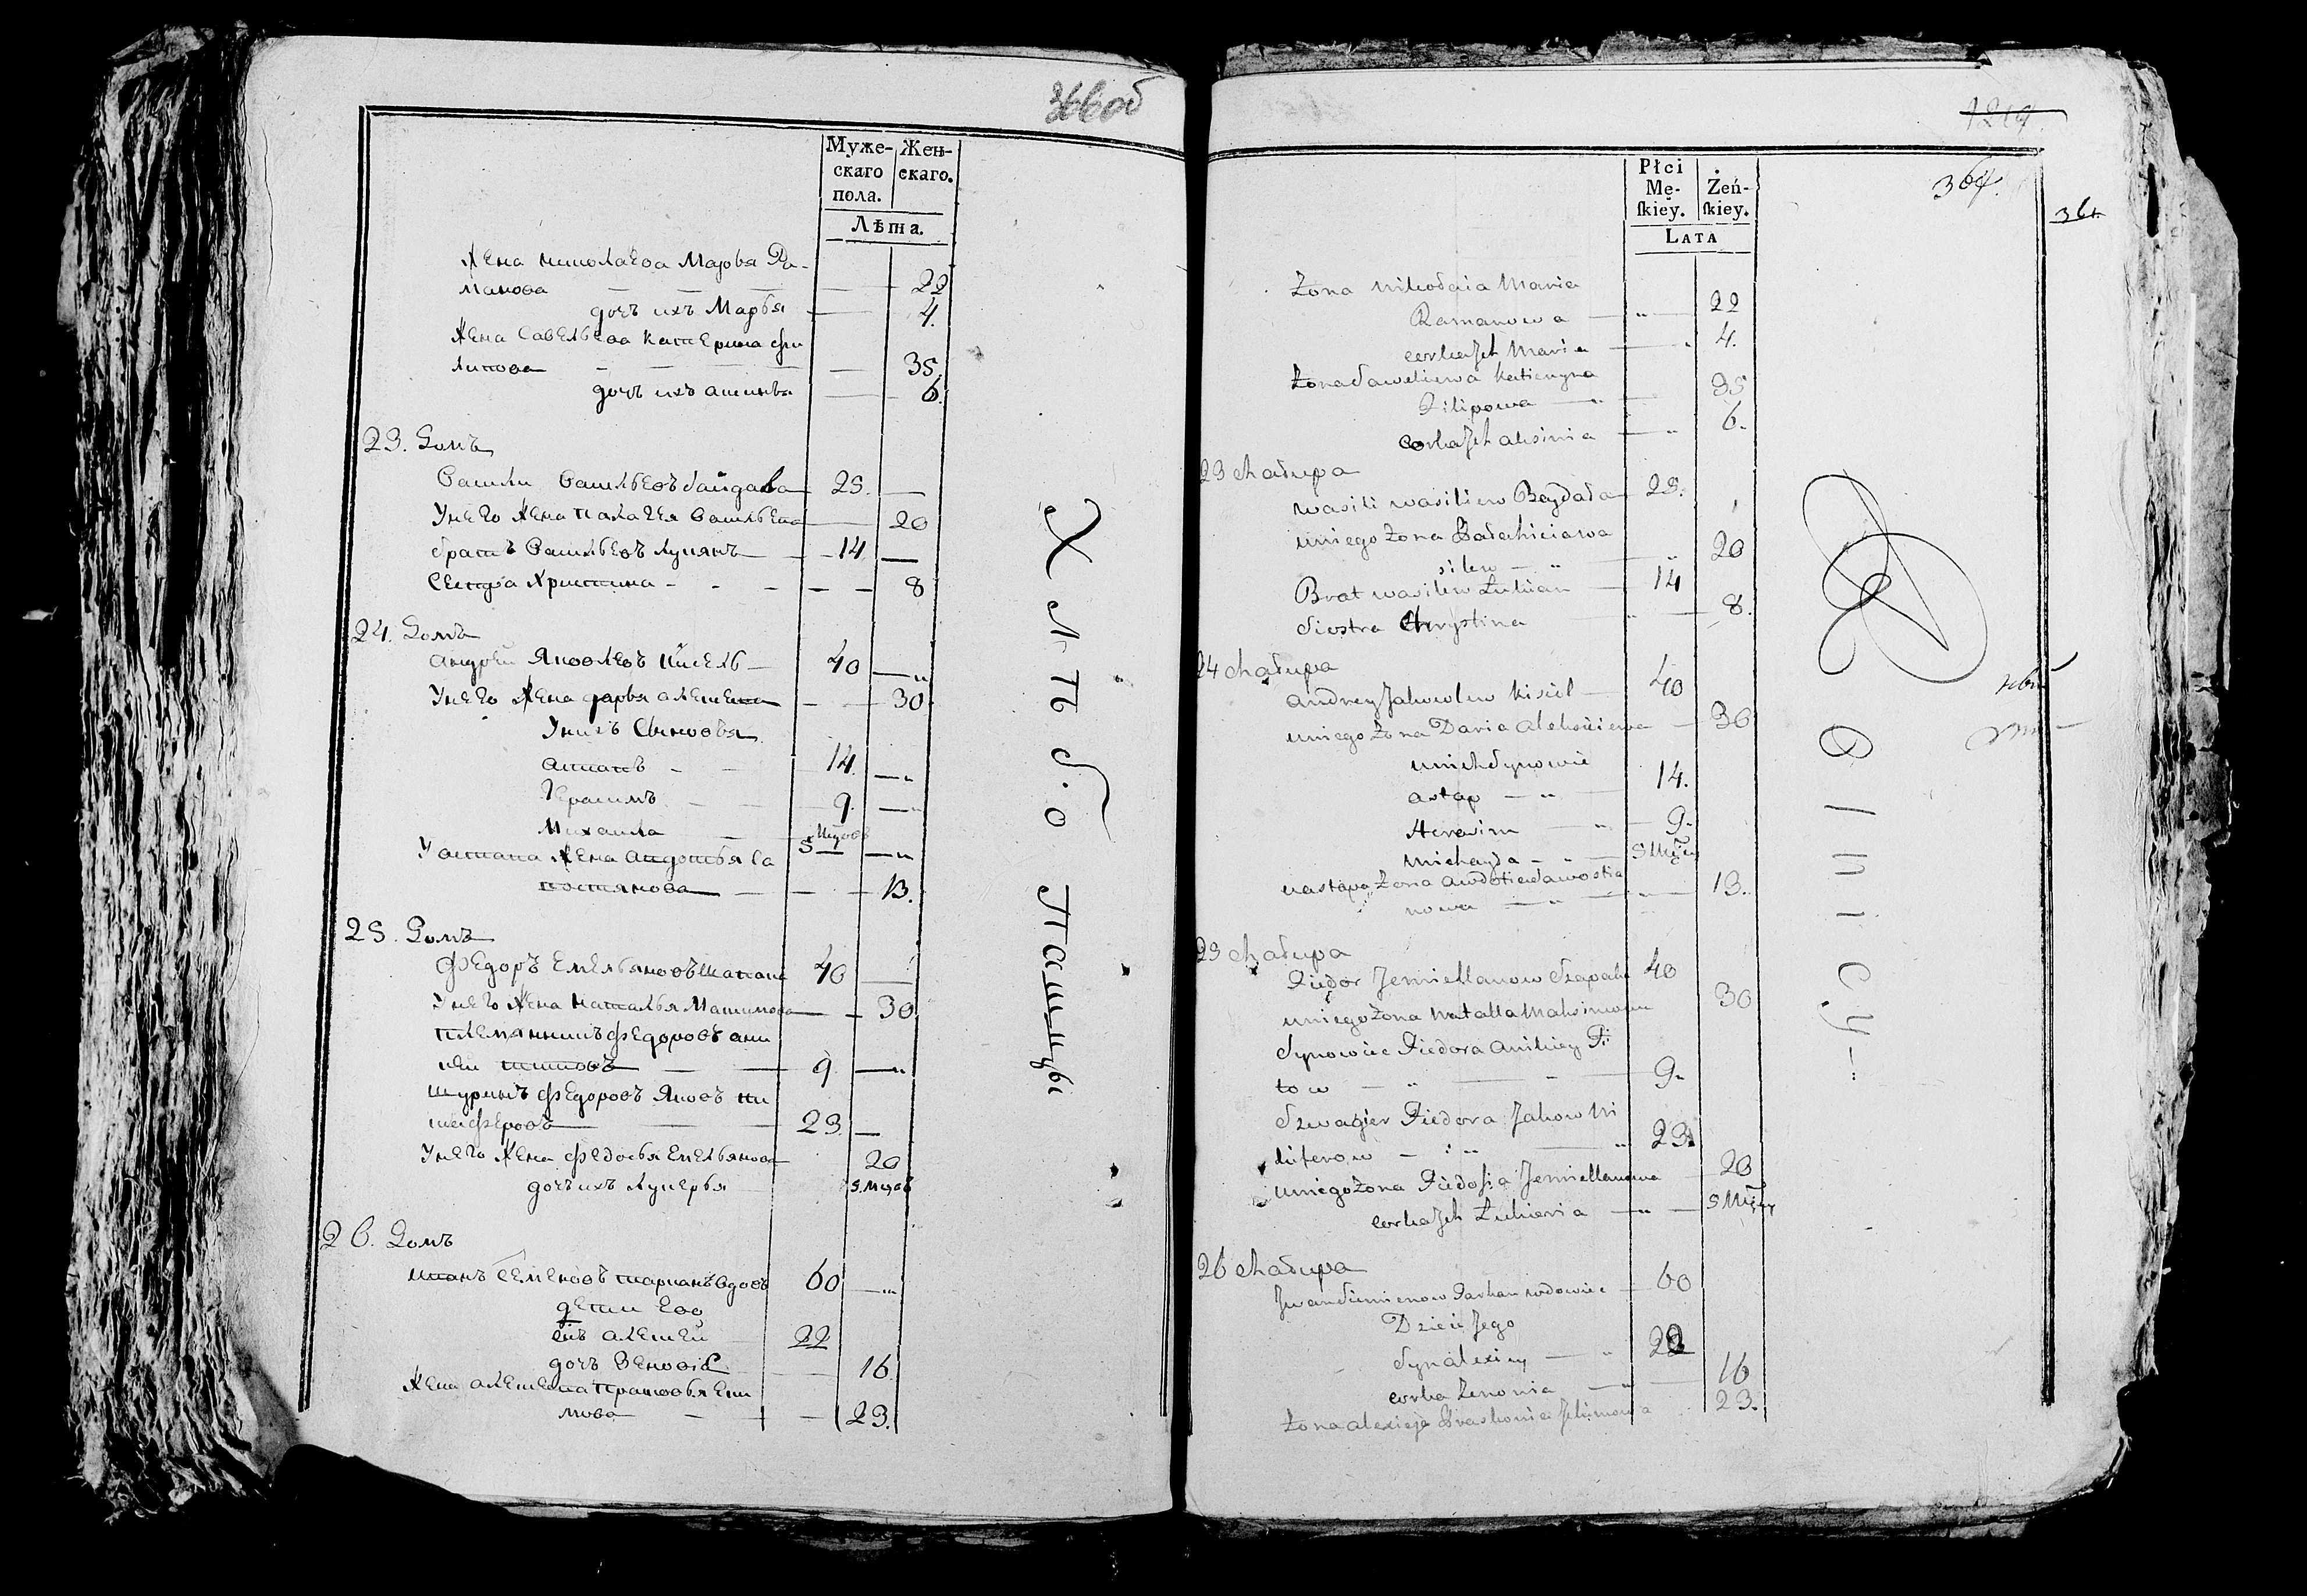 366 об
Муже-
скаго
пола.
Жен-
скаго.
Лѣта.
Жена николаева Марья Ра-
манова 22
дочь ихъ Марья 4.
Жена Савельева катерина фи
липова 35
дочь ихъ аксинья 6.
23. Домъ
Василий Васильевъ байдала 25.
Унего жена палагея Васильева 20
братъ Васильевъ лукянъ 14
Сестра христина 8
24. Домъ
андрей Яковлевъ кисель 40
Унего жена дарья алексеева 30
Унихъ Сыновья
астапъ 14.
Герасимъ 9.
Михаила 5 мцовъ
У астапа жена авдотья Са
востянова 13.
25. Домъ
Федоръ Емельяновъ шапака 40
Унего жена наталья Максимова 30
племянникъ федоровъ ани
кей титовъ 9
шуринъ федоровъ Яковъ ни
кифоровъ 23
Унего жена федосья Емельянова 20
дочь ихъ лукерья 5. мцовъ
26. Домъ
иванъ Семеновъ тарканъ вдовъ 60
дети его
снъ алексей 22
дочь Зеновiя 16.
жена алексеева прасковья Еки
мова 23.
Хлѣбо
Пашцы
1214.
364.
Płci
Mę-
ſkiey.
Żeń-
ſkiey.
LATA
Zona nikołaia Maria
Ramanowa 22
corka Jch Maria 4.
Zona Sawieliewa Katieryna
Filipowa 35
corka Jch aksinia 6.
23 chałupa
wasili wasiliew Baydała 25.
uniego Zona Pałahieia wa
silew 20
Brat wasilew Łukian 14
Siostra Chrystina 8.
24 chałupa
andrey Jakowlew kisiel 40
uniego Zona Daria aleksiejewa 30
unich Synowie
astap 14.
Herasim 9.
Michayła 5 Mcy
uastapa Zona awdotia Sawostia
nowa 13.
25 chałupa
Fiedor Jemiellanow Szapaka 40
uniego Zona Natalla Maksimowa 30
Synowiec Fiedora anikiey Ti
tow 9.
Szwagier Fiedora Jakow Ni
kiferow 23
uniego Zona Fiedosia Jemiellanowa 20
corka Jch Łukieria 5 Mcy
26 chałupa
Jwan Siemienow Tarkan wdowiec 60
Dzieci Jego
Syn alexiey 22
corka Zenowia 16
Zona alexieja Praskowia Jekimowa 23.